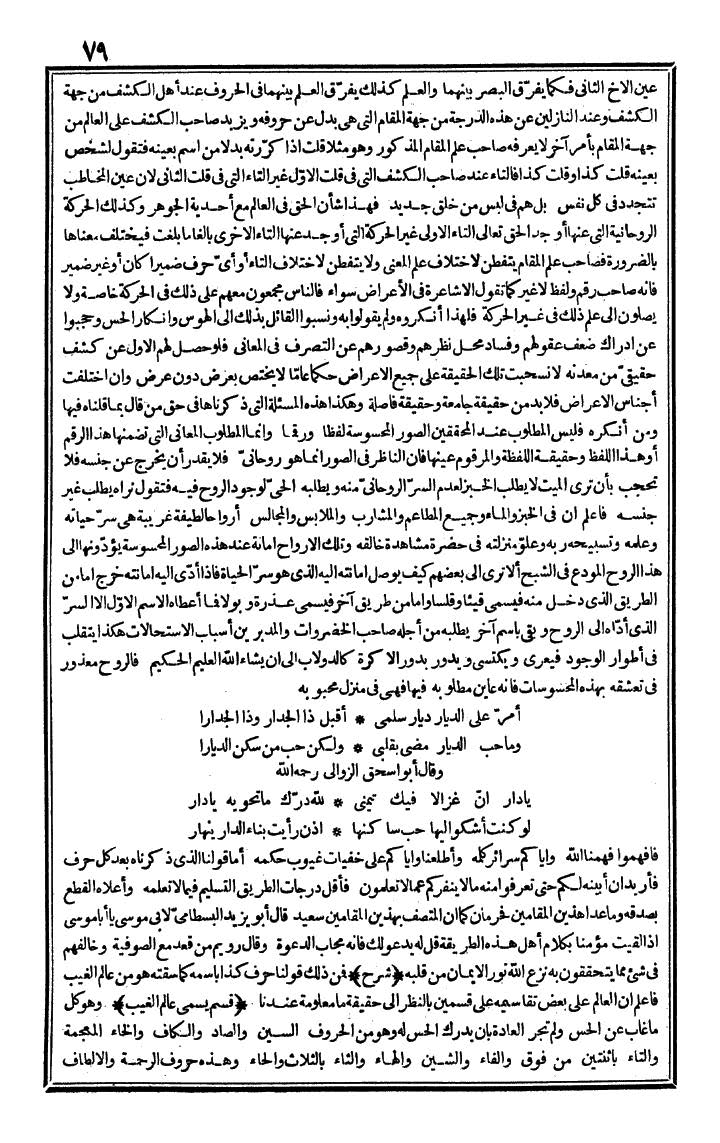 ٧٩
عين الاخ الثانى فكما يفرّق البصر بينهما والعلم كذلك يفرّق العلم بينهما فى الحروف عند أهل الكشف من جهة
الكشف وعند النازلين عن هذه الدرجة من جهة المقام التى هى بدل عن حروفه ويزيد صاحب الكشف على العالم من
جهة المقام بأمر آخر لا يعرفه صاحب علم المقام المذكور وهو مثلا قلت اذا كرّرته بدلا من اسم بعينه فتقول لشخص
بعينه قلت كذا وقلت كذا فالتاء عند صاحب الكشف التى فى قلت الاوّل غير التاء التى فى قلت الثانى لان عين المخاطب
تتجدد فى كل نفس بل هم فى لبس من خلق جديد فهذا شأن الحق فى العالم مع أحدية الجوهر وكذلك الحركة
الروحانية التى عنها أوجد الحق تعالى التاء الاولى غير الحركة التى أوجد عنها التاء الاخرى بالغا ما بلغت فيختلف معناها
بالضرورة فصاحب علم المقام يتفطن لاختلاف علم المعنى ولا يتفطن لاختلاف التاء أو أىّ حرف ضميرا كان أو غير ضمير
فانه صاحب رقم ولفظ لا غير كما تقول الاشاعرة فى الأعراض سواء فالناس مجمعون معهم على ذلك فى الحركة خاصة ولا
يصلون الى علم ذلك فى غير الحركة فلهذا أنكروه ولم يقولوا به ونسبوا القائل بذلك الى الهوس وانكار الحس وحجبوا
عن ادراك ضعف عقولهم وفساد محل نظرهم وقصورهم عن التصرف فى المعانى فلو حصل لهم الاول عن كشف
حقيقىّ من معدنه لانسحبت تلك الحقيقة على جميع الاعراض حكما عامّا لا يختص بعرض دون عرض وان اختلفت
أجناس الاعراض فلا بد من حقيقة جامعة وحقيقة فاصلة وهكذا هذه المسئلة التى ذكرناها فى حق من قال بما قلناه فيها
ومن أنكره فليس المطلوب عند المحققين الصور المحسوسة لفظا ورقما وانما المطلوب المعانى التى تضمنها هذا الرقم
أو هذا اللفظ وحقيقة اللفظة والمرقوم عينها فان الناظر فى الصور انما هو روحانىّ فلا يقدر أن يخرج عن جنسه فلا
تحجب بأن ترى الميت لا يطلب الخبز لعدم السرّ الروحانىّ منه ويطلبه الحىّ لوجود الروح فيه فتقول نراه يطلب غير
جنسه فاعلم ان فى الخبز والماء وجميع المطاعم والمشارب والملابس والمجالس أرواحا لطيفة غريبة هى سرّ حياته
وعلمه وتسبيحه ربه وعلوّ منزلته فى حضرة مشاهدة خالقه وتلك الارواح امانة عند هذه الصور المحسوسة يؤدّونها الى
هذا الروح المودع فى الشبح ألا ترى الى بعضهم كيف يوصل امانته اليه الذى هو سرّ الحياة فاذا أدّى اليه امانته خرج اما من
الطريق الذى دخل منه فيسمى قيئا وقلسا واما من طريق آخر فيسمى عذرة وبولا فما أعطاه الاسم الاوّل الا السرّ
الذى أدّاه الى الروح وبقى باسم آخر يطلبه من أجله صاحب الخضروات والمدبرين أسباب الاستحالات هكذا يتقلب
فى أطوار الوجود فيعرى ويكتسى ويدور بدور الاكرة كالدولاب الى ان يشاء الله العليم الحكيم فالروح معذور
فى تعشقه بهذه المحسوسات فانه عاين مطلوبه فيها فهى فى منزل محبوبه
أمرّ على الديار ديار سلمى * أقبل ذا الجدار وذا الجدارا
وما حب الديار مضى بقلبى * ولكن حب من سكن الديارا
وقال أبو اسحق الزوالى رحمه الله
يا دار انّ غزالا فيك تيمنى * لله درّك ما تحويه يا دار
لو كنت أشكو اليها حب ساكنها * اذن رأيت بناء الدار ينهار
فافهموا فهمنا الله واياكم سرائر كله وأطلعنا واياكم على خفيات غيوب حكمه أما قولنا الذى ذكرناه بعد كل حرف
فأريد ان أبينه لكم حتى تعرفوا منه ما لا ينفركم عما لا تعلمون فأقل درجات الطريق التسليم فيما لا تعلمه وأعلاه القطع
بصدقه وما عدا هذين المقامين فحرمان كما ان المتصف بهذين المقامين سعيد قال أبو يزيد البسطامىّ لابى موسى يا أبا موسى
اذا لقيت مؤمنا بكلام أهل هذه الطريقة قل له يدعو لك فانه مجاب الدعوة وقال رويم من قعد مع الصوفية وخالفهم
فى شئ مما يتحققون به نزع الله نور الايمان من قلبه ﴿شرح﴾ فمن ذلك قولنا حرف كذا باسمه كما سقته هو من عالم الغيب
فاعلم ان العالم على بعض تقاسيمه على قسمين بالنظر الى حقيقة ما معلومة عندنا ﴿قسم يسمى عالم الغيب﴾ وهو كل
ما غاب عن الحس ولم تجر العادة بان يدرك الحس له وهو من الحروف السين والصاد والكاف والخاء المعجمة
والتاء باثنتين من فوق والفاء والشين والهاء والثاء بالثلاث والحاء وهذه حروف الرحمة والالطاف